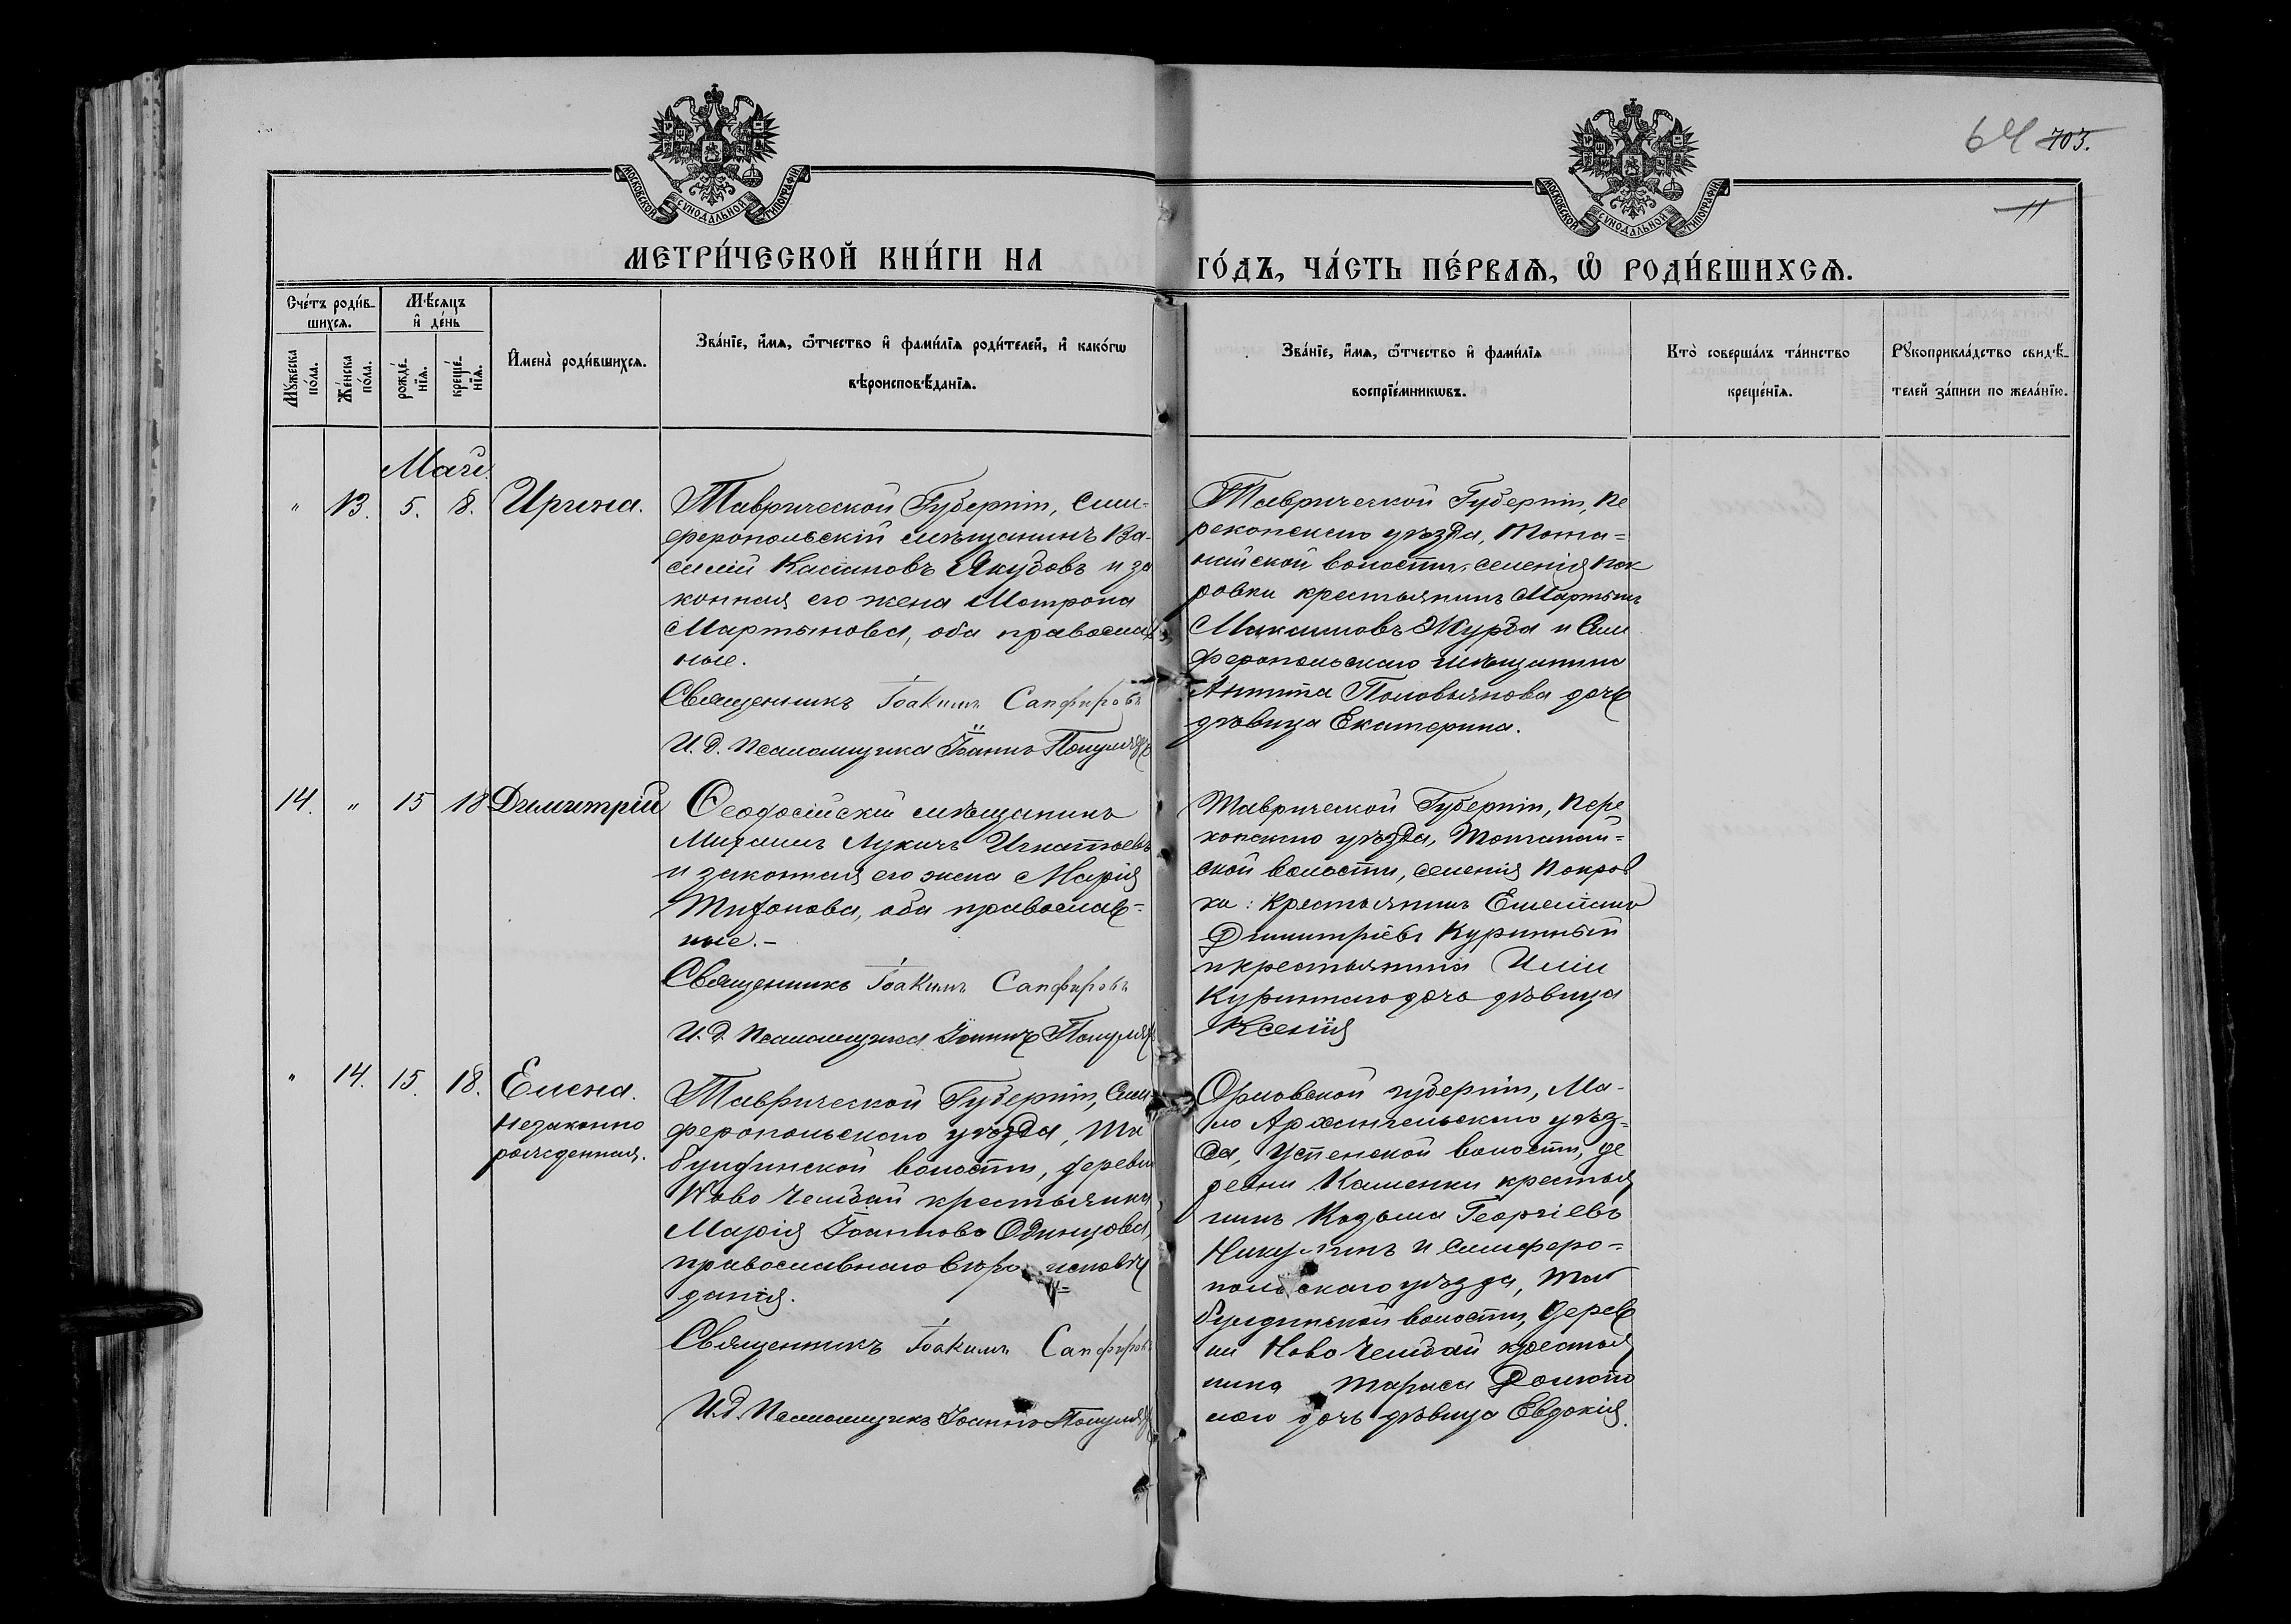 64 703.
11
МОСКОВСКОЙ СѴНОДАЛЬНОЙ ТИПОГРАФІИ
МОСКОВСКОЙ СѴНОДАЛЬНОЙ ТИПОГРАФІИ
МЕТРИ́ЧЕСКОЙ КНИ́ГИ НА ГО́ДЪ, ЧА́СТЬ ПЕ́РВАЯ, Ѡ҆ РОДИ́ВШИХСЯ.
Сче́тъ роди́в-
шихся.
Мꙋ́жеска по́ла.
Же́нска по́ла.
Мѣ́сяцъ
и҆ де́нь
рожде́-
нїя.
креще́-
нїя.
И҆мена̀ роди́вшихся.
Зва́нїе, и҆́мя, ѻ҆́тчество и҆ фами́лїя роди́телей, и҆ како́гѡ
вѣроисповѣ́данїя.
Зва́нїе, и҆́мя, ѻ҆́тчество и҆ фами́лїя
воспрїе́мникѡвъ.
Кто̀ соверша́лъ та́инство
креще́нїя.
Рꙋкоприкла́дство свидѣ́-
телей за́писи по жела́нїю.
Май
" 13. 5. 8. Ирина.
Таврической Губерніи, Сим-
феропольскій мѣщанинъ Ва-
силій Касіановъ Якубовъ и за
конная его жена Матрона
Мартынова, оба православ
ные.
Священникъ Іоакимъ Сапфировъ
И. д. Псаломщика Іоаннъ
Таврической Губерніи, Пе
рекопскаго уѣзда, Тота-
найской волости, селенія Пок
ровки крестьянинъ Мартынъ
Максимовъ Журба и Сим
феропольскаго мѣщанина
Антипа Половьянова дочь
дѣвица Екатерина.
14. " 15 18 Димитрій
Ѳеодосійскій мѣщанинъ
Михаилъ Лукичъ Игнатьевъ
и законная его жена Марія
Тихонова, оба православ-
ные.-
Священникъ Іоакимъ Сапфировъ
И. д. Псаломщика Іоаннъ
Таврической Губерніи, Пере
копскаго уѣзда, Тотанай-
ской волости, селенія Покров
ки: Крестьянинъ Емеліанъ
Димитріевъ Куринный
и крестьянина Иліи
Куриннаго дочь дѣвица
Ксенія
" 14. 15. 18. Елена.
незаконно
рожденная.
Таврической Губерніи, Сим
феропольскаго уѣзда, Та
булдинской волости, деревни
Ново Чембай крестьянка
Марія Іоаннова Одинцова,
православнаго вѣро исповѣ
данія.
Священникъ Іоакимъ Сапфировъ
И. д. Псаломщика Іоаннъ
Орловской губерніи, Ма-
ло Архангельскаго уѣз-
да, Успенской волости, де
ревни Каменки крестья
нинъ Козьма Георгіевъ
Никулинъ и Симферо-
польскаго уѣзда, Таб
булдинской волости, дерев
ни Ново Чембай крестья
нина Тараса
дочь дѣвица Евдокія.